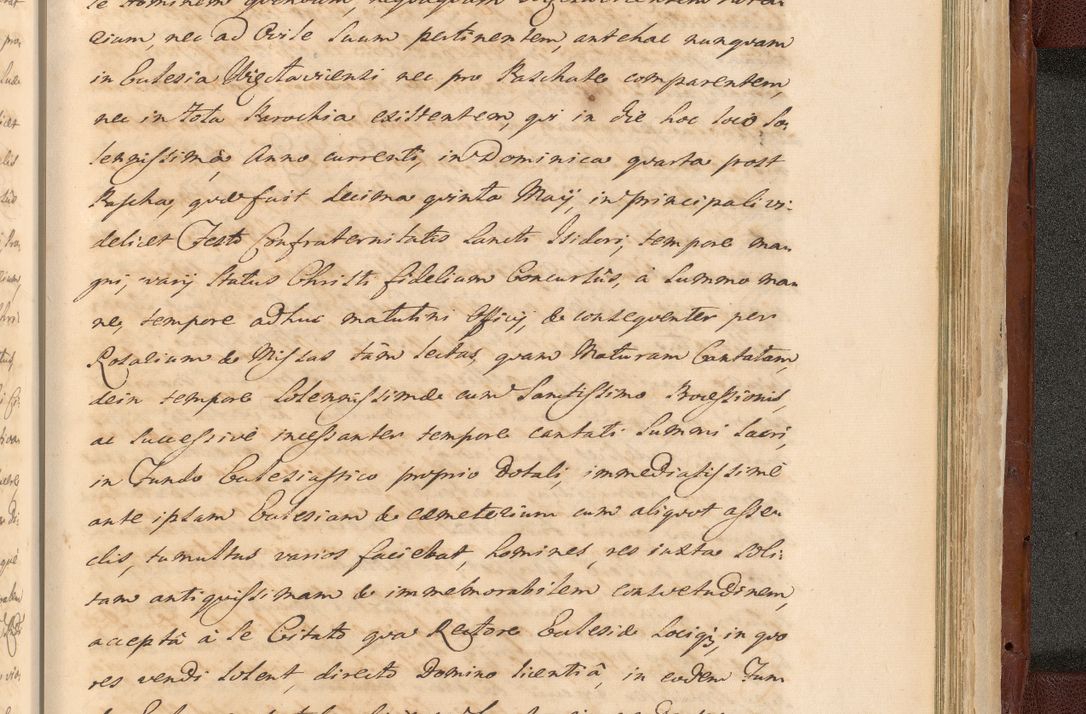 se Hominem quendam, nequaquam
cium, nec ad Ovile suum pertinentem, antehac nunquam
in Ecclesia Więclaviensi nec pro Paschate comparentem,
nec in tota Parochia existentem, qui in Die hoc loco so,
lennissima Anno currenti, in Dominica quarta post
Pascha, quae fuit decima quinta Maij, in principali vi,
delicet Festo Confraternitatis Sancti Isidori, tempore ma,
gni, varij status Christi fidelium Concursûs, à summo ma,
ne, tempore adhuc matutini Officij, & consequenter per
Rosarium & Missas tàm lectas, quam Maturam Cantatam,
dein tempore solennissimae cum Sanctissimo Processionis,
ac successivè incessanter tempore cantati Summi Sacri,
in Fundo Ecclesiastico proprio Dotali, immediatissimè
ante ipsam Ecclesiam & caemeterium cum aliquot asse,
clis, tumultus varios faciebat, homines, res iuxta soli,
tam antiquissimam & immemorabilem consvetudinem,
acceptâ à se Citato qua Rectore Ecclesiae Locique, in quo
res vendi solent, directo Domino licentiâ, in eodem Fun